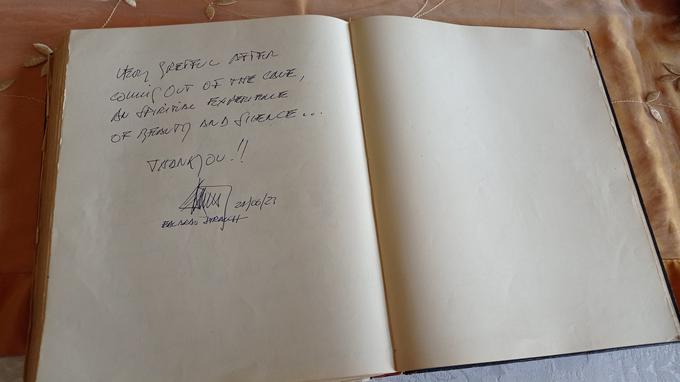 VERY GREFFUL AFTER
COMING OUT OF THE CAVE,
AN SPIRITIAL EXPERIENCE
OF BEAUTY AND SILENCE...
THANK YOU!!